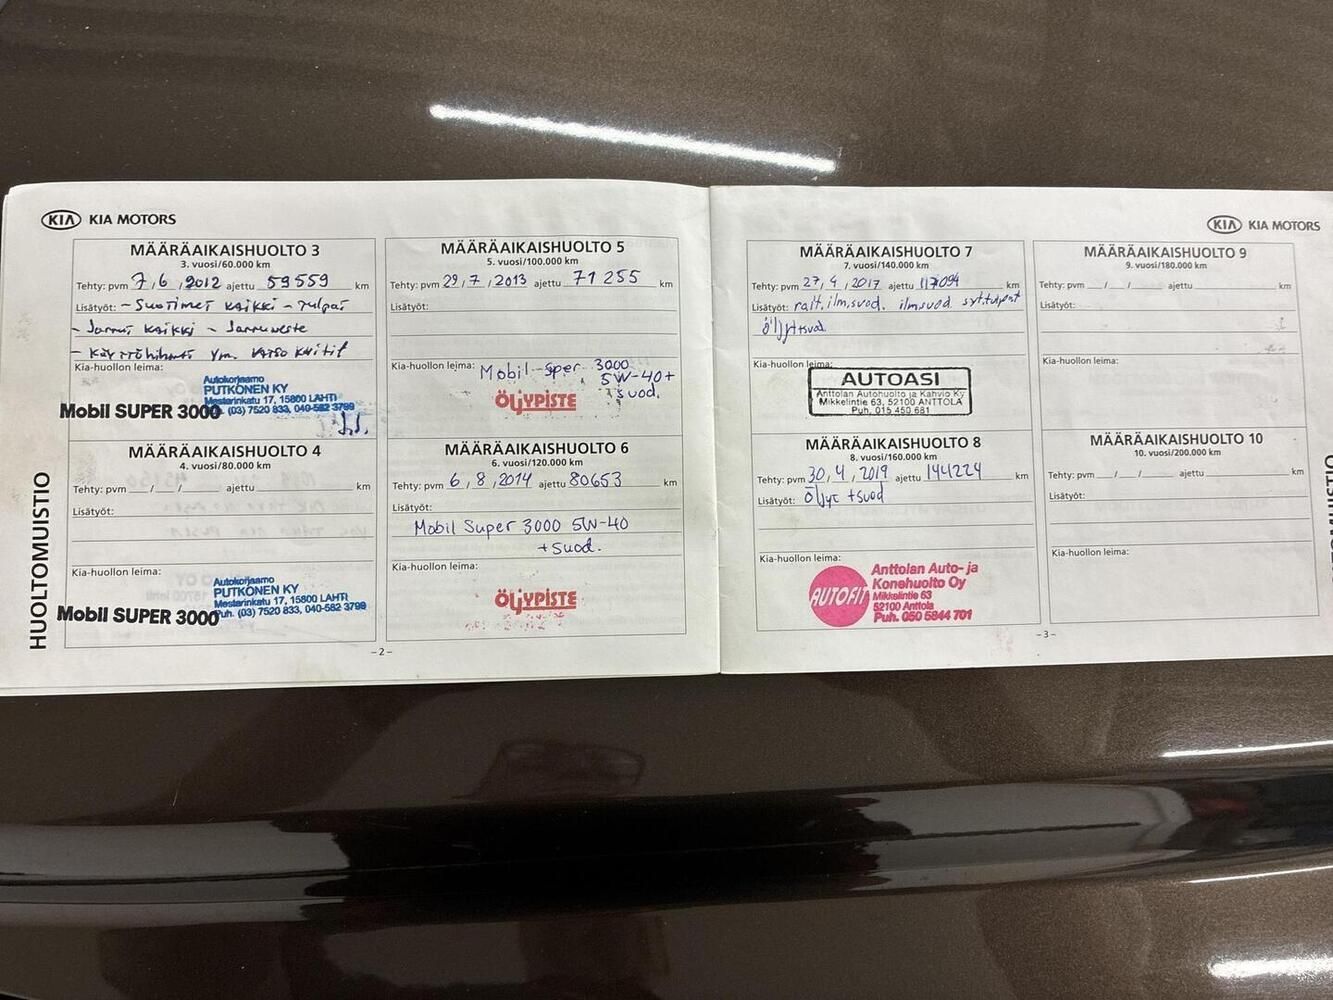 KIA KIA MOTORS
MÄÄRÄAIKAISHUOLTO 3
3. vuosi/60.000 km
Tehty: pvm 7,6,2012 ajettu 59559 km
Lisätyöt: - Suotimet kaikki - Tulpat
- Jarrut kaikki - Jarruneste
- Käyttöhihnat ym. katso kuitit
Kia-huollon leima:
Autokorjaamo
PUTKONEN KY
Mestarinkatu 17, 15800 LAHTI
Puh. (03) 7520 833, 040-582 3799
Mobil SUPER 3000
MÄÄRÄAIKAISHUOLTO 4
4. vuosi/80.000 km
Tehty: pvm / / ajettu km
Lisätyöt:
Kia-huollon leima:
Autokorjaamo
PUTKONEN KY
Mestarinkatu 17, 15800 LAHTI
Puh. (03) 7520 833, 040-582 3799
Mobil SUPER 3000
HUOLTOMUISTIO
MÄÄRÄAIKAISHUOLTO 5
5. vuosi/100.000 km
Tehty: pvm 29,7,2013 ajettu 71255 km
Lisätyöt:
Kia-huollon leima: Mobil Super 3000
5W-40+
suod.
ÖLJYPISTE
MÄÄRÄAIKAISHUOLTO 6
6. vuosi/120.000 km
Tehty: pvm 6,8,2014 ajettu 80653 km
Lisätyöt:
Mobil Super 3000 5W-40
+ suod.
Kia-huollon leima:
ÖLJYPISTE
- 2 -
KIA KIA MOTORS
MÄÄRÄAIKAISHUOLTO 7
7. vuosi/140.000 km
Tehty: pvm 27,4,2017 ajettu 117094 km
Lisätyöt: rait.ilm.suod. ilmsuod syt.tulpat
öljyt+suod.
Kia-huollon leima:
AUTOASI
Anttolan Autohuolto ja Kahvio Ky
Mikkelintie 63, 52100 ANTTOLA
Puh. 015 450 681
MÄÄRÄAIKAISHUOLTO 8
8. vuosi/160.000 km
Tehty: pvm 30,4,2019 ajettu 144224 km
Lisätyöt: Öljyt +suod
Kia-huollon leima:
AUTOFIT
Anttolan Auto- ja
Konehuolto Oy
Mikkelintie 63
52100 Anttola
Puh. 050 5844 701
MÄÄRÄAIKAISHUOLTO 9
9. vuosi/180.000 km
Tehty: pvm / / ajettu km
Lisätyöt:
Kia-huollon leima:
MÄÄRÄAIKAISHUOLTO 10
10. vuosi/200.000 km
Tehty: pvm / / ajettu km
Lisätyöt:
Kia-huollon leima:
- 3 -